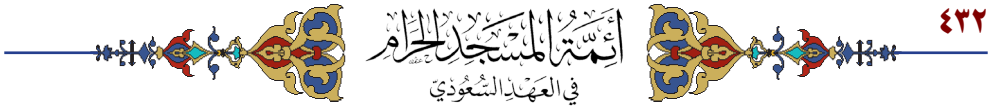 ٤٣٢
أئمة المسجد الحرام
في العهد السعودي